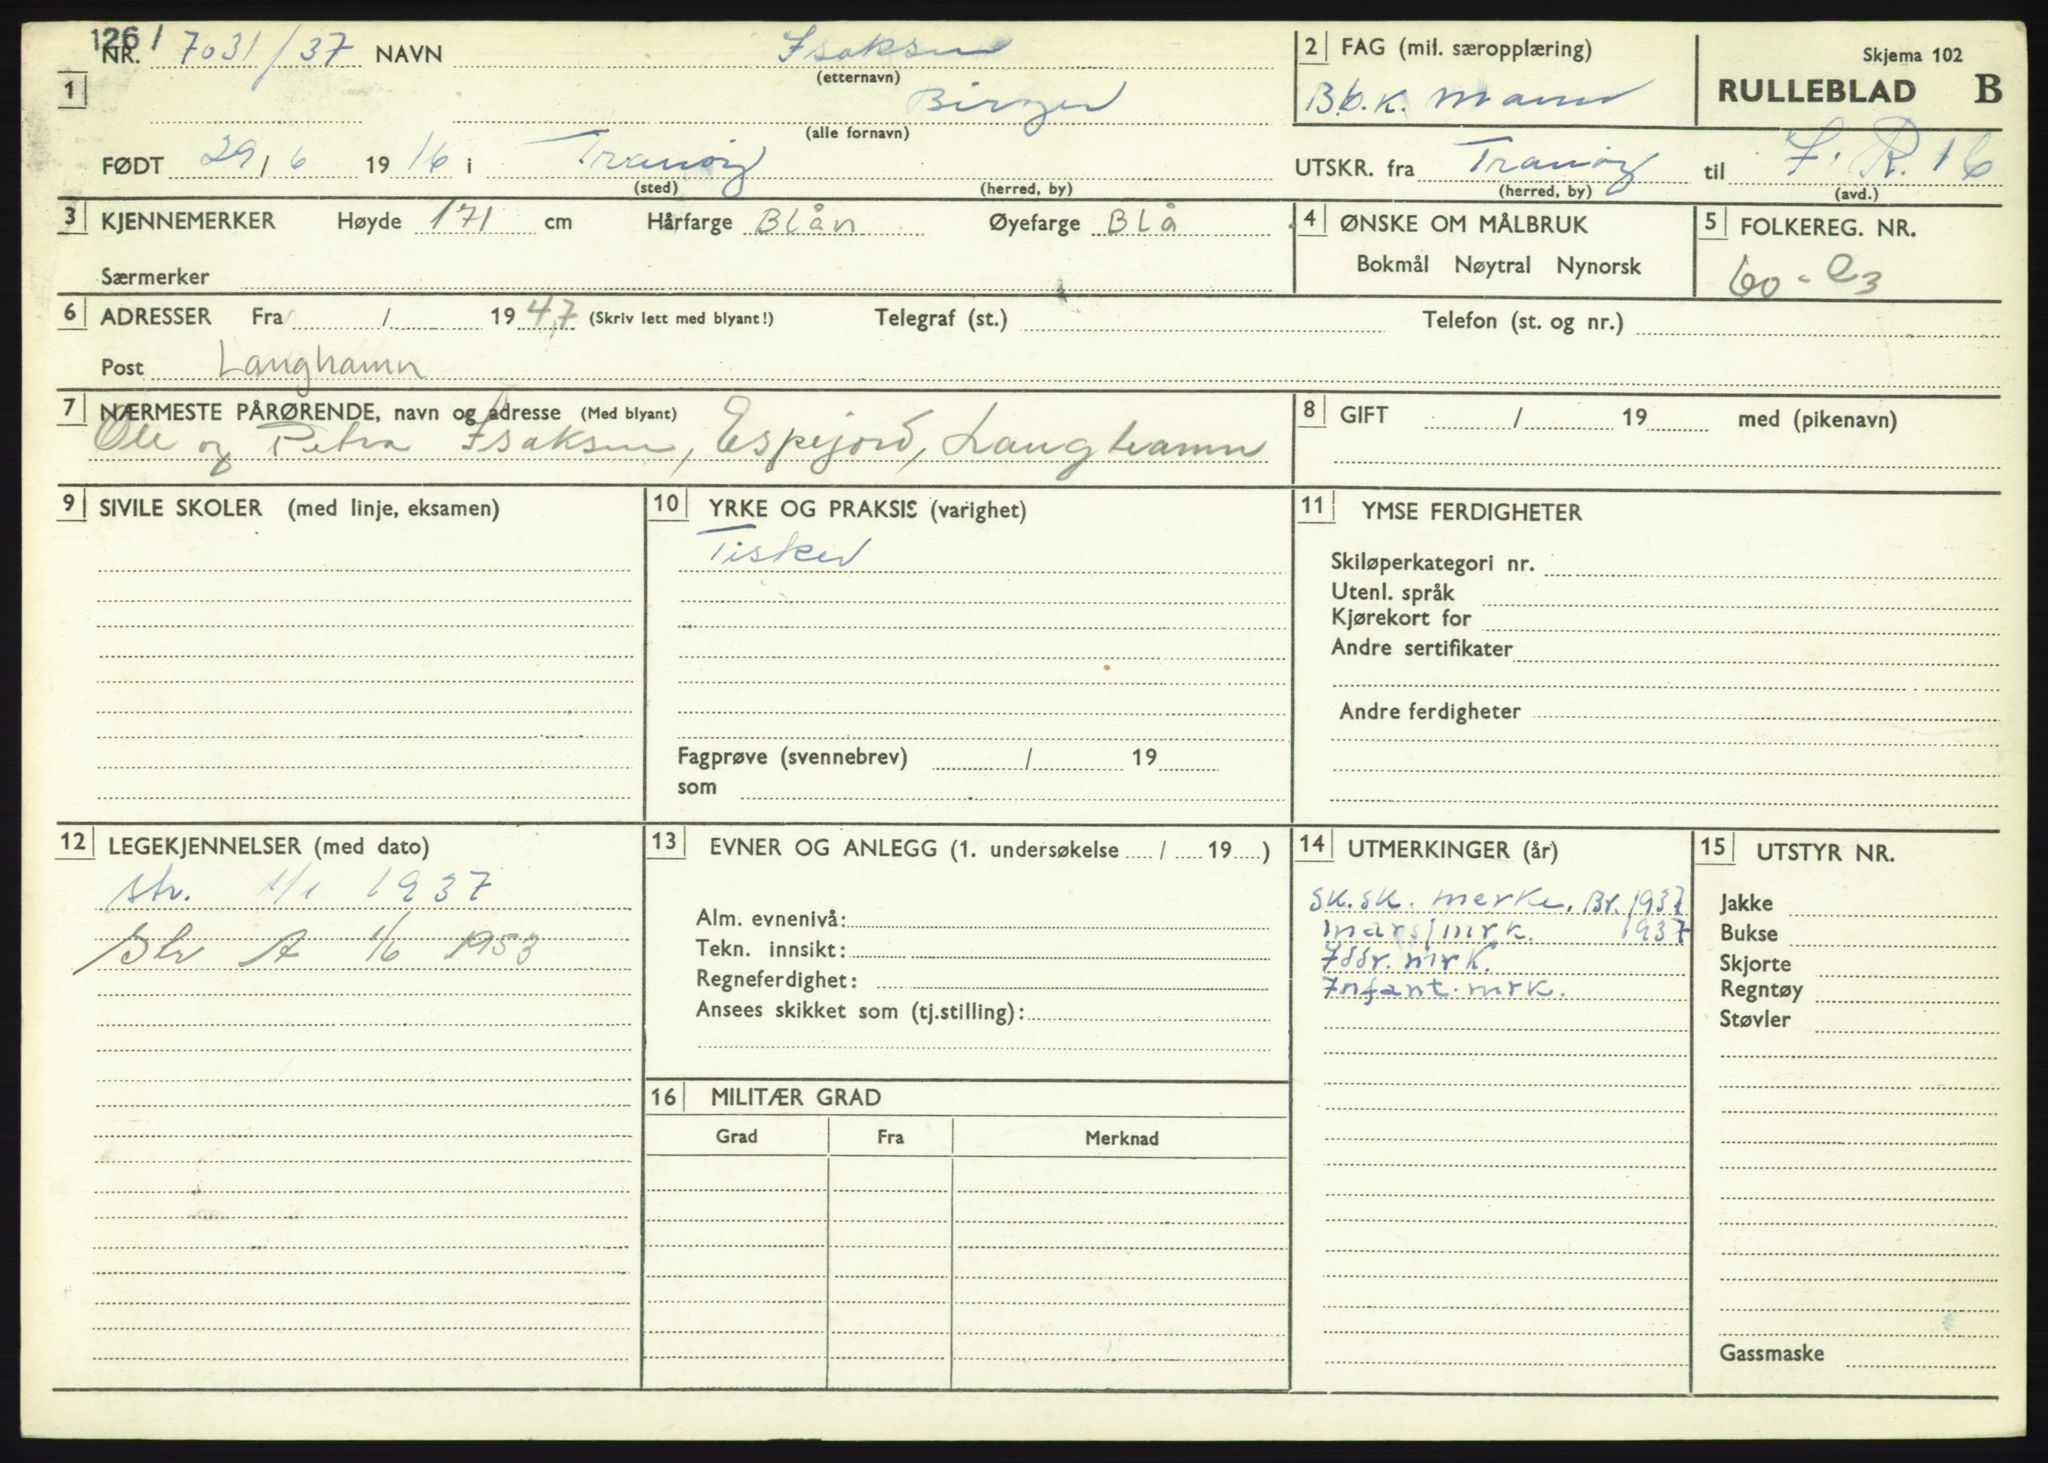 1261
NR. 7031/37 NAVN Isaksen
(etternavn)
1
Birger
(alle fornavn)
FØDT 29/6 1916 i Tranøy
(sted) (herred, by)
2 FAG (mil. særopplæring)
B.b.K. mann
Skjema 102
RULLEBLAD B
UTSKR. fra Tranøy til I.R. 16
(herred, by) (avd.)
3 KJENNEMERKER Høyde 171 cm Hårfarge Blån Øyefarge Blå
Særmerker
4 ØNSKE OM MÅLBRUK
Bokmål Nøytral Nynorsk
5 FOLKEREG. NR.
60-03
6 ADRESSER Fra / 1947 (Skriv lett med blyant!) Telegraf (st.) Telefon (st. og nr.)
Post Langhamn
7 NÆRMESTE PÅRØRENDE, navn og adresse (Med blyant)
Ole og Petra Isaksen, Espejord, Langhamn
8 GIFT / 19 med (pikenavn)
9 SIVILE SKOLER (med linje, eksamen)
10 YRKE OG PRAKSIS (varighet)
Fisker
Fagprøve (svennebrev) / 19
som
11 YMSE FERDIGHETER
Skiløperkategori nr.
Utenl. språk
Kjørekort for
Andre sertifikater
Andre ferdigheter
12 LEGEKJENNELSER (med dato)
Str. 1/1 1937
Str A 1/6 1953
13 EVNER OG ANLEGG (1. undersøkelse / 19 )
Alm. evnenivå:
Tekn. innsikt:
Regneferdighet:
Ansees skikket som (tj.stilling):
16 MILITÆR GRAD
Grad Fra Merknad
14 UTMERKINGER (år)
SK.SK. merke. Br. 1937
Marsjmrk. 1937
Iddr. mrk.
Infant. mrk.
15 UTSTYR NR.
Jakke
Bukse
Skjorte
Regntøy
Støvler
Gassmaske